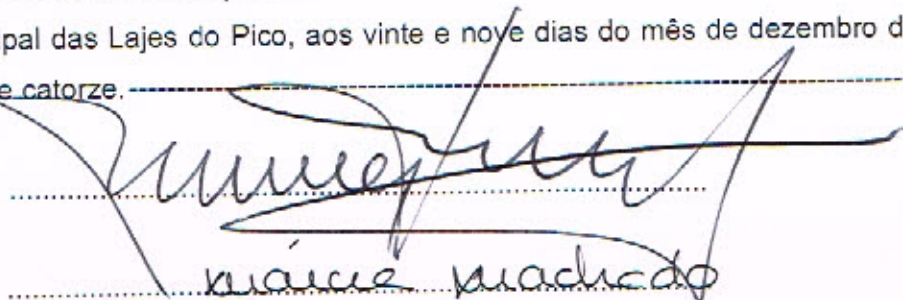 pal das Lajes do Pico, aos vinte e nove dias do mês de dezembro d
e catorze.
Márcia Machado